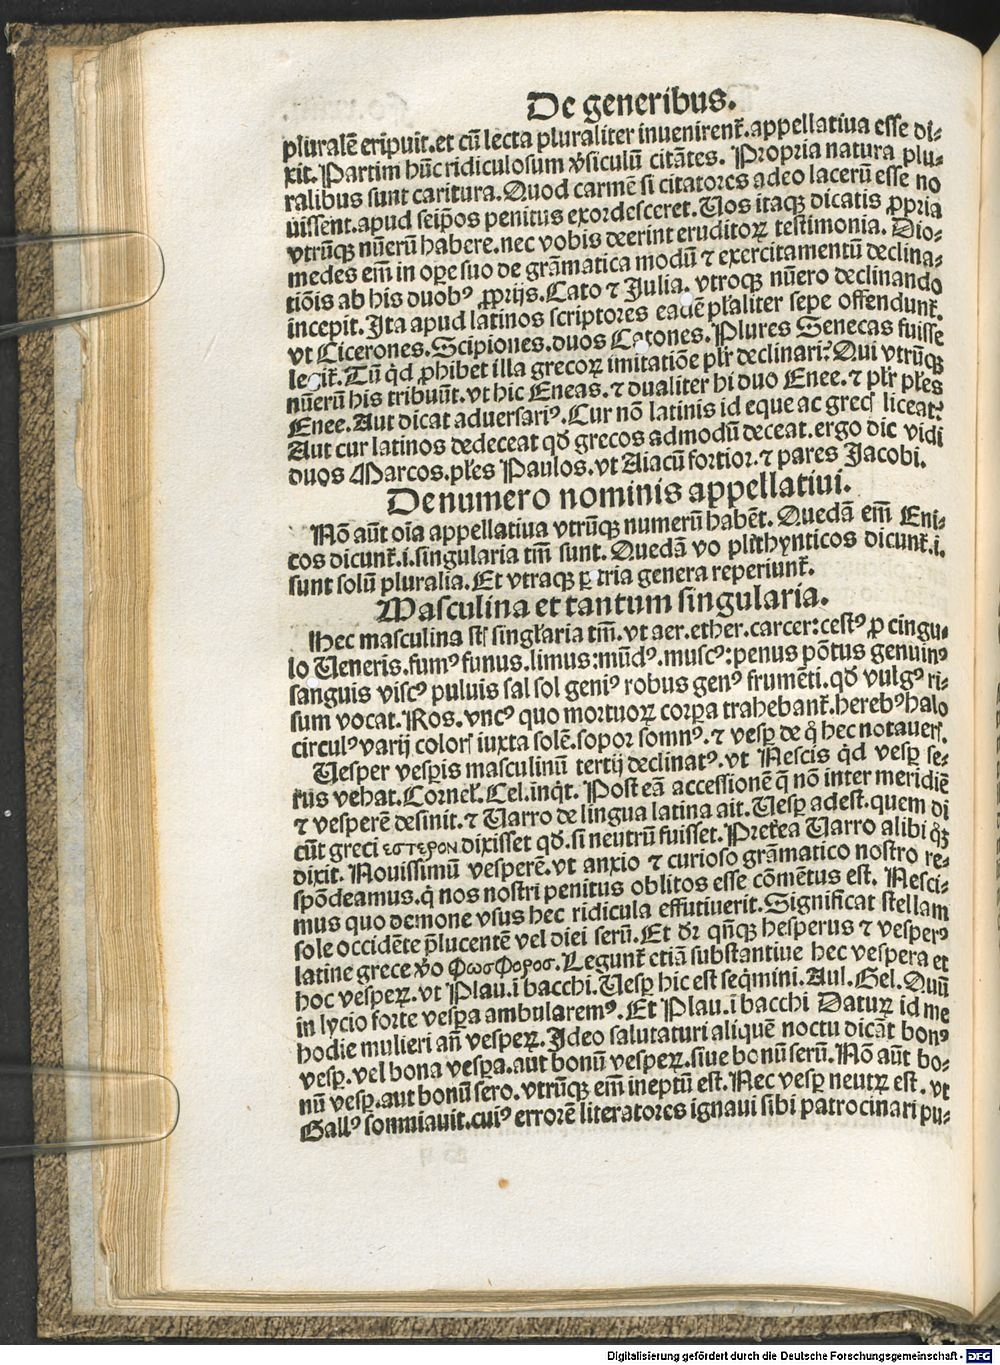 De generibus.
pluralē eripuit.et cū lecta pluraliter inuenirent̄.appellatiua esse di⸗
xit.Partim hūc ridiculosum v̓siculū citātes. Propria natura plu⸗
ralibus sunt caritura.Quod carmē si citatores adeo lacerū esse no
uissent.apud seip̄os penitus exordesceret.Uos itaqꝫ dicatis ꝓpria
vtrūqꝫ nūerū habere.nec vobis deerint eruditoꝝ testimonia. Dio⸗
medes em̄ in oꝑe suo de grāmatica modū ⁊ exercitamentū declina⸗
tiōis ab his duobꝰ ꝓprijs.Cato ⁊ Julia. vtroqꝫ nūero declinando
incepit.Ita apud latinos scriptores eadē pl̄aliter sepe offendunt̄.
vt Cicerones.Scipiones.duos Catones. Plures Senecas fuisse
legit̄.Tū qͥd ꝓhibet illa grecoꝝ imitatiōe plr̄ declinari?Qui vtrūqꝫ
nūerū his tribuūt.vt hic Eneas.⁊ dualiter hi duo Enee.⁊ plr̄ pl̄es
Enee.Aut dicat aduersariꝰ.Cur nō latinis id eque ac grecis liceat?
Aut cur latinos dedeceat qd̄ grecos admodū deceat.ergo dic vidi
duos Marcos.pl̄es Paulos.vt Aiacū fortior.⁊ pares Jacobi.
De numero nominis appellatiui.
Nō aūt oīa appellatiua vtrūqꝫ numerū habēt. Quedā em̄ Eni⸗
cos dicunt̄.i.singularia tm̄ sunt. Quedā vo plithynticos dicunt̄.i.
sunt solū pluralia. Et vtraqꝫ ꝑ tria genera reperiunt̄.
Masculina et tantum singularia.
Hec masculina st̄ singl̄aria tm̄. vt aer.ether.carcer:cestꝰ ꝓ cingu⸗
lo Ueneris.fumꝰ funus.limus:mūdꝰ.muscꝰ:penus pōtus genuinꝰ
sanguis viscꝰ puluis sal sol geniꝰ robus genꝰ frumēti.qd̄ vulgꝰ ri⸗
sum vocat.Ros.vncꝰ quo mortuoꝝ corꝑa trahebant̄.herebꝰ halo
circulꝰ varij coloris iuxta solē.sopor somnꝰ.⁊ vesꝑ de q̄ hec notaueris.
Uesper vesꝑis masculinū tertij declinatꝰ.vt Nescis qͥd vesꝑ se⸗
rus vehat.Cornel̄.Cel.inqͥt. Post eā accessionē q̄ nō inter meridiē
⁊ vesperē desinit.⁊ Varro de lingua latina ait.Uesꝑ adest.quem di
cūt greci εστερον dixisset qd̄.si neutrū fuisset.Preterea Varro alibi
dixit. Nouissimū vesperē.vt anxio ⁊ curioso grāmatico nostro re⸗
spōdeamus.q̄ nos nostri penitus oblitos esse cōmētus est. Nesci⸗
mus quo demone vsus hec ridicula effutiuerit.Significat stellam
sole occidēte p̄lucentē vel diei serū.Et dr̄ qn̄qꝫ hesperus ⁊ vesperꝰ
latine grece v̓o Φωσφορος.Legunt̄ etiā substantiue hec vespera et
hoc vesperꝝ.vt Plau.ī bacchi.Uesꝑ hic est seqͥmini.Aul.Gel.Quū
in lycio forte vesꝑa ambularemꝰ.Et Plau.ī bacchi Daturꝝ id me
hodie mulieri añ vesperꝝ.Ideo salutaturi aliquē noctu dicāt bonꝰ
vesꝑ.vel bona vesꝑa.aut bonū vesperꝝ.siue bonū serū. Nō aūt bo⸗
nū vesꝑ.aut bonū sero.vtrūqꝫ em̄ ineptū est.Nec vesꝑ neutrꝝ est. vt
Gallꝰ somniauit.cuiꝰ errorē literatores ignaui sibi patrocinari pu⸗
Digitalisierung gefördert durch die Deutsche Forschungsgemeinschaft - DFG